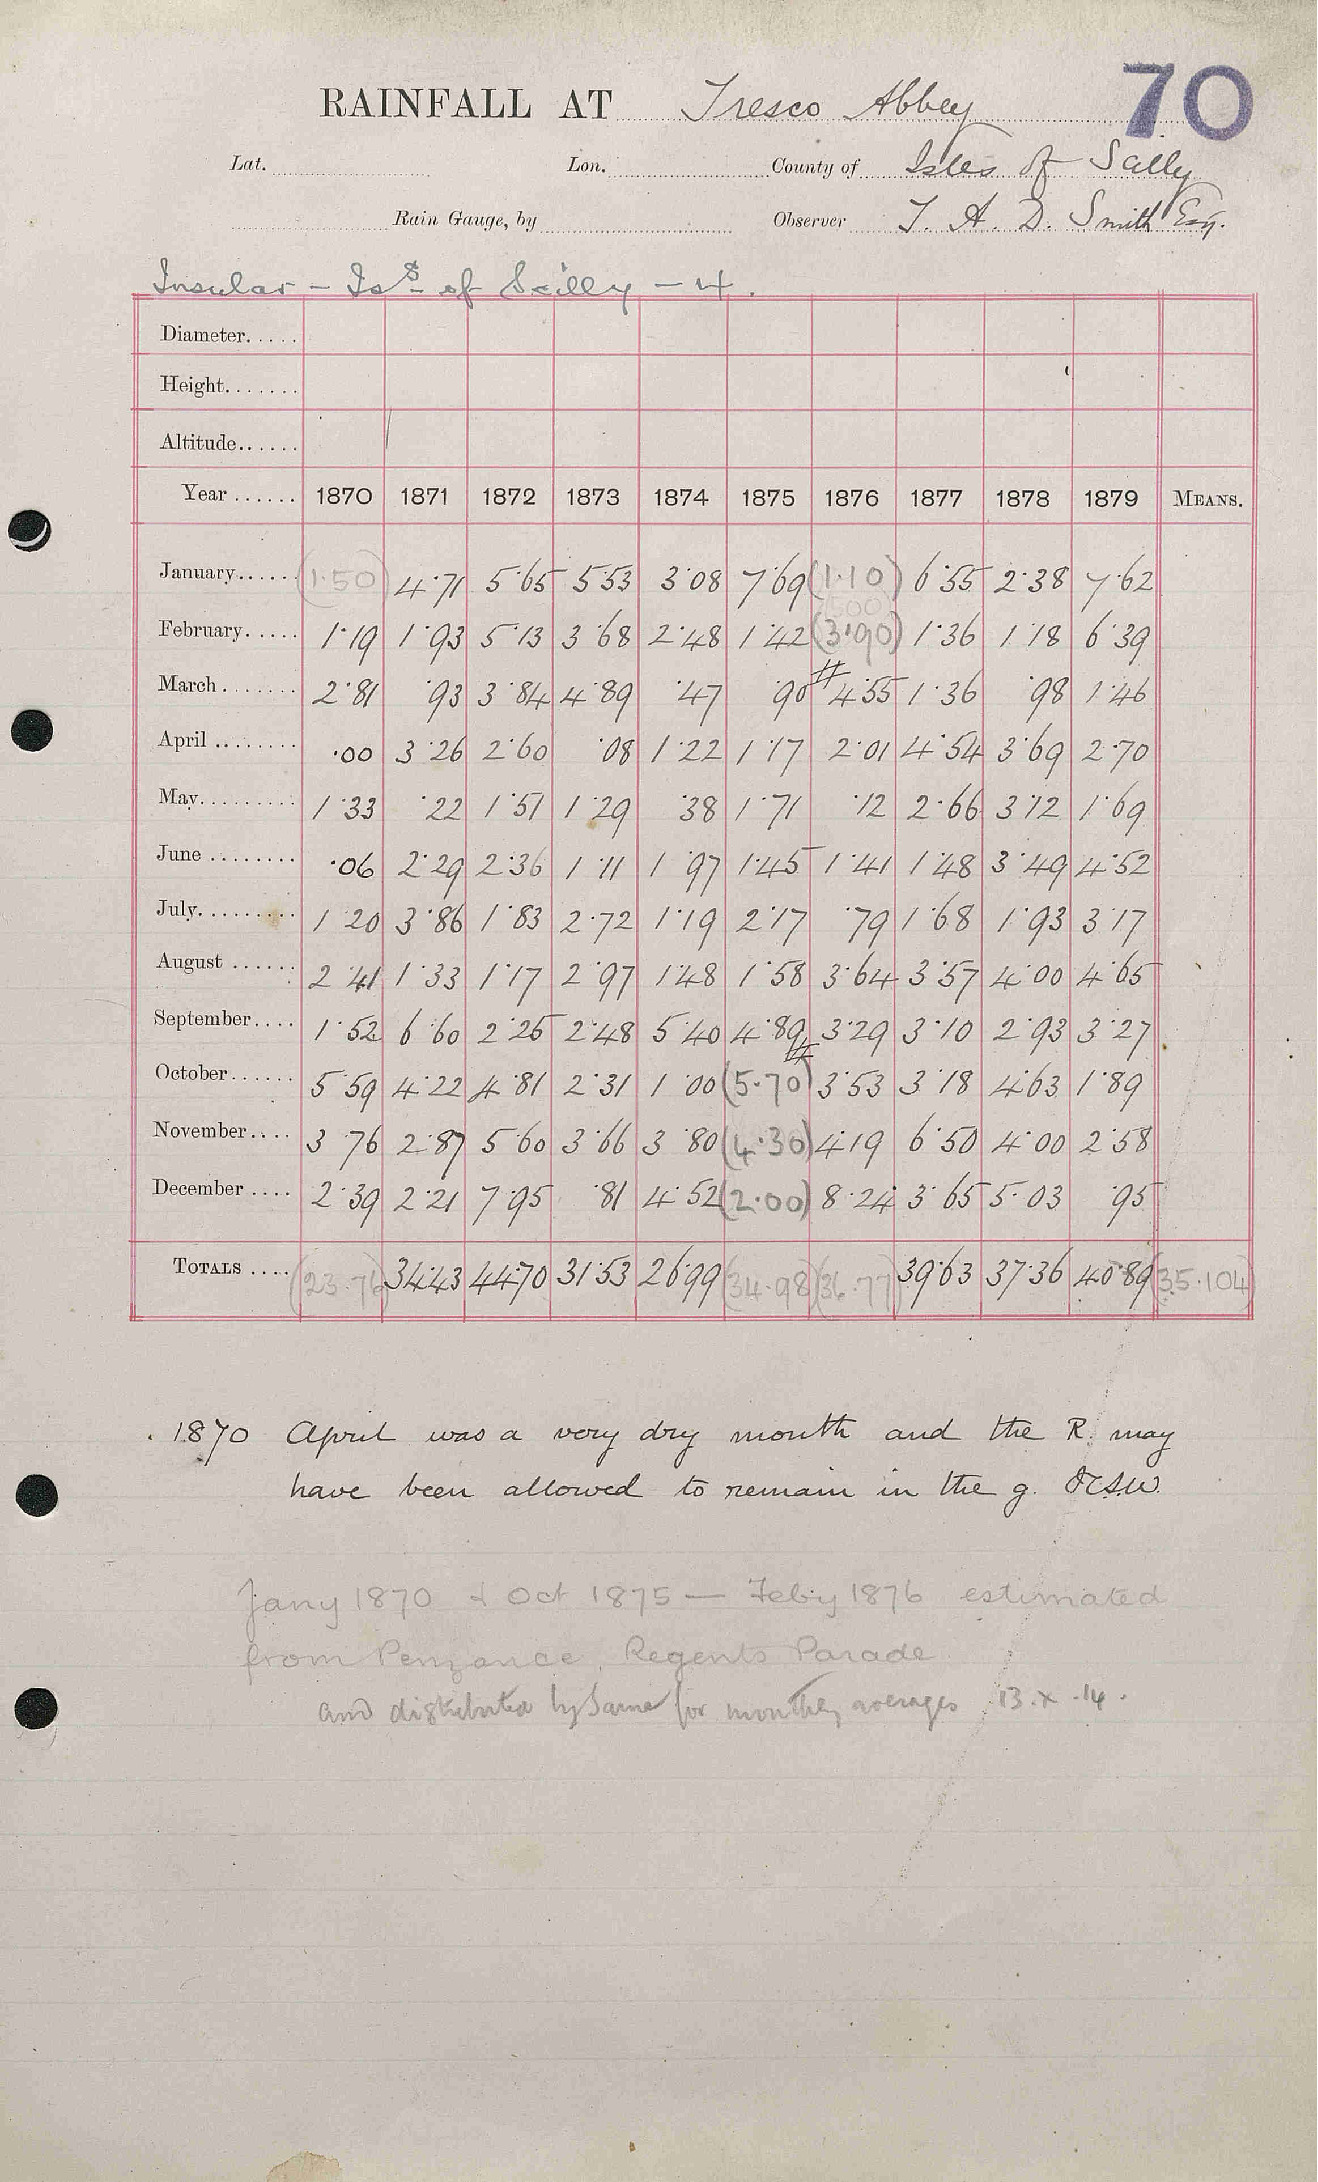 70
RAINFALL AT Tresco Abbey
Lat. Lon. County of Isles of Scilly
Rain Gauge, by Observer T. A. D. Smith Esq.
Insular - Is.s of Scilly - 4.
Diameter.....
Height.......
Altitude......
Year ...... 1870 1871 1872 1873 1874 1875 1876 1877 1878 1879 MEANS.
January...... (1.50) 4.71 5.65 5.53 3.08 7.69 (1.10) 6.55 2.38 7.62
500
February..... 1.19 1.93 5.13 3.68 2.48 1.42 (3.90) 1.36 1.18 6.39
March ....... 2.81 .93 3.84 4.89 .47 .90 # 4.55 1.36 .98 1.46
April ........ .00 3.26 2.60 .08 1.22 1.17 2.01 4.54 3.69 2.70
May......... 1.33 .22 1.51 1.29 .38 1.71 .12 2.66 3.12 1.69
June ........ .06 2.29 2.36 1.11 1.97 1.45 1.41 1.48 3.49 4.52
July......... 1.20 3.86 1.83 2.72 1.19 2.17 .79 1.68 1.93 3.17
August ...... 2.41 1.33 1.17 2.97 1.48 1.58 3.64 3.57 4.00 4.65
September.... 1.52 6.60 2.25 2.48 5.40 4.89 # 3.29 3.10 2.93 3.27
October...... 5.59 4.22 4.81 2.31 1.00 (5.70) 3.53 3.18 4.63 1.89
November.... 3.76 2.87 5.60 3.66 3.80 (4.30) 4.19 6.50 4.00 2.58
December .... 2.39 2.21 7.95 .81 4.52 (2.00) 8.24 3.65 5.03 .95
TOTALS .... (23.76) 34.43 44.70 31.53 26.99 (34.98) (36.77) 39.63 37.36 40.89 (35.104)
1870 April was a very dry month and the R. may
have been allowed to remain in the g.
Jany 1870 & Oct 1875 — Feby 1876 estimated
from Penzance, Regents Parade
and distributed by Same for monthly averages 13.x.14.